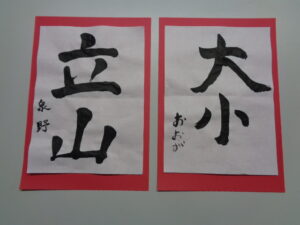 大小
おおが
立山
泉野